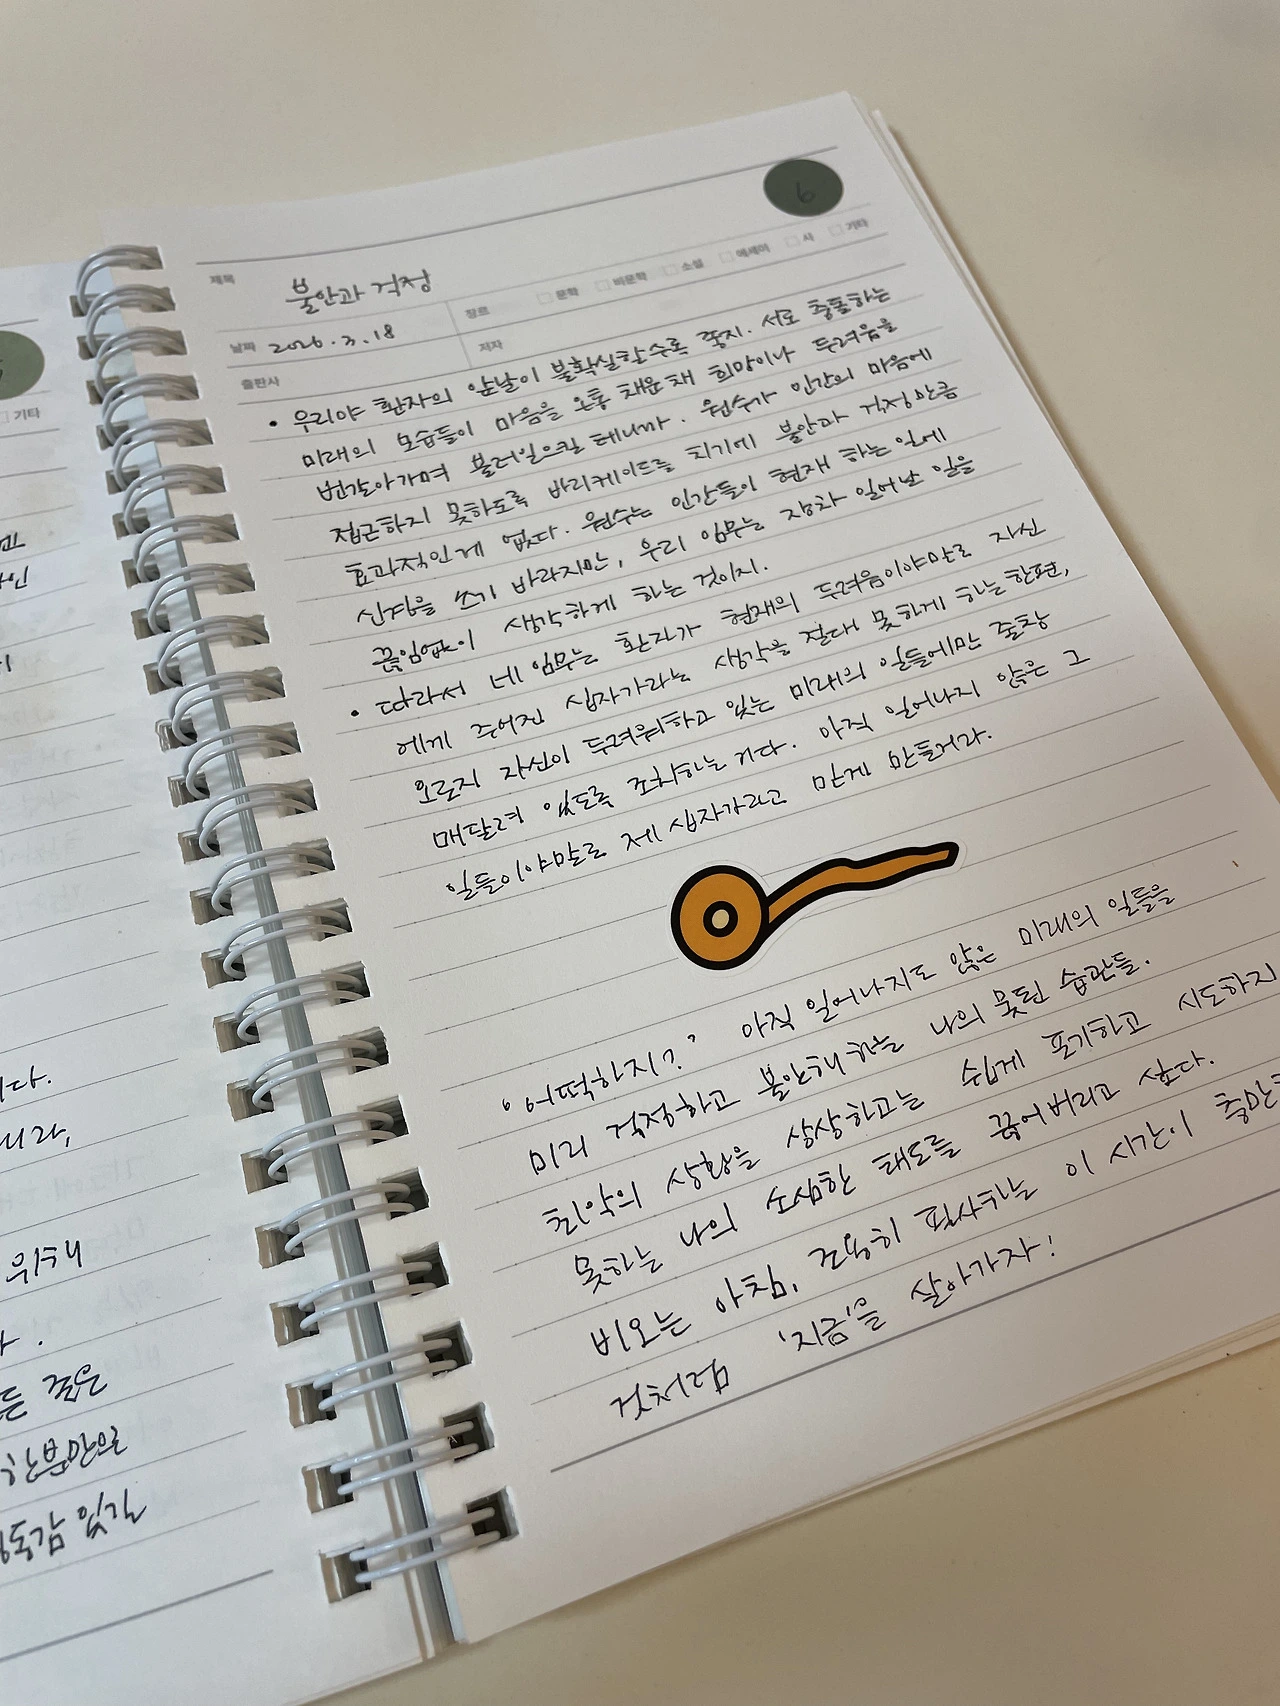 6
제목 불안과 걱정
장르 □ 문학 □ 비문학 □ 소설 □ 에세이 □ 시 □ 기타
날짜 2026.3.18
저자
출판사
• 우리야 환자의 앞날이 불확실할수록 좋지. 서로 충돌하는
미래의 모습들이 마음을 온통 채운 채 희망이나 두려움을
번갈아가며 불러일으킬 테니까. 원수가 인간의 마음에
접근하지 못하도록 바리케이드를 치기에 불안과 걱정만큼
효과적인 게 없다. 원수는 인간들이 현재 하는 일에
신경을 쓰기 바라지만, 우리 임무는 장차 일어날 일을
끊임없이 생각하게 하는 것이지.
• 따라서 네 임무는 환자가 현재의 두려움이야말로 자신
에게 주어진 십자가라는 생각을 절대 못하게 하는 한편,
오로지 자신이 두려워하고 있는 미래의 일들에만 줄창
매달려 있도록 조치하는 거다. 아직 일어나지 않은 그
일들이야말로 제 십자가라고 믿게 만들거라.
'어떡하지?' 아직 일어나지도 않은 미래의 일들을
미리 걱정하고 불안해하는 나의 못된 습관들.
최악의 상황을 상상하고는 쉽게 포기하고 시도하지
못하는 나의 소심한 태도를 끊어버리고 싶다.
비오는 아침, 조용히 필사하는 이 시간이 충만한
것처럼 '지금'을 살아가자!
기타
니다.
니라,
위해
한분만으로
있길